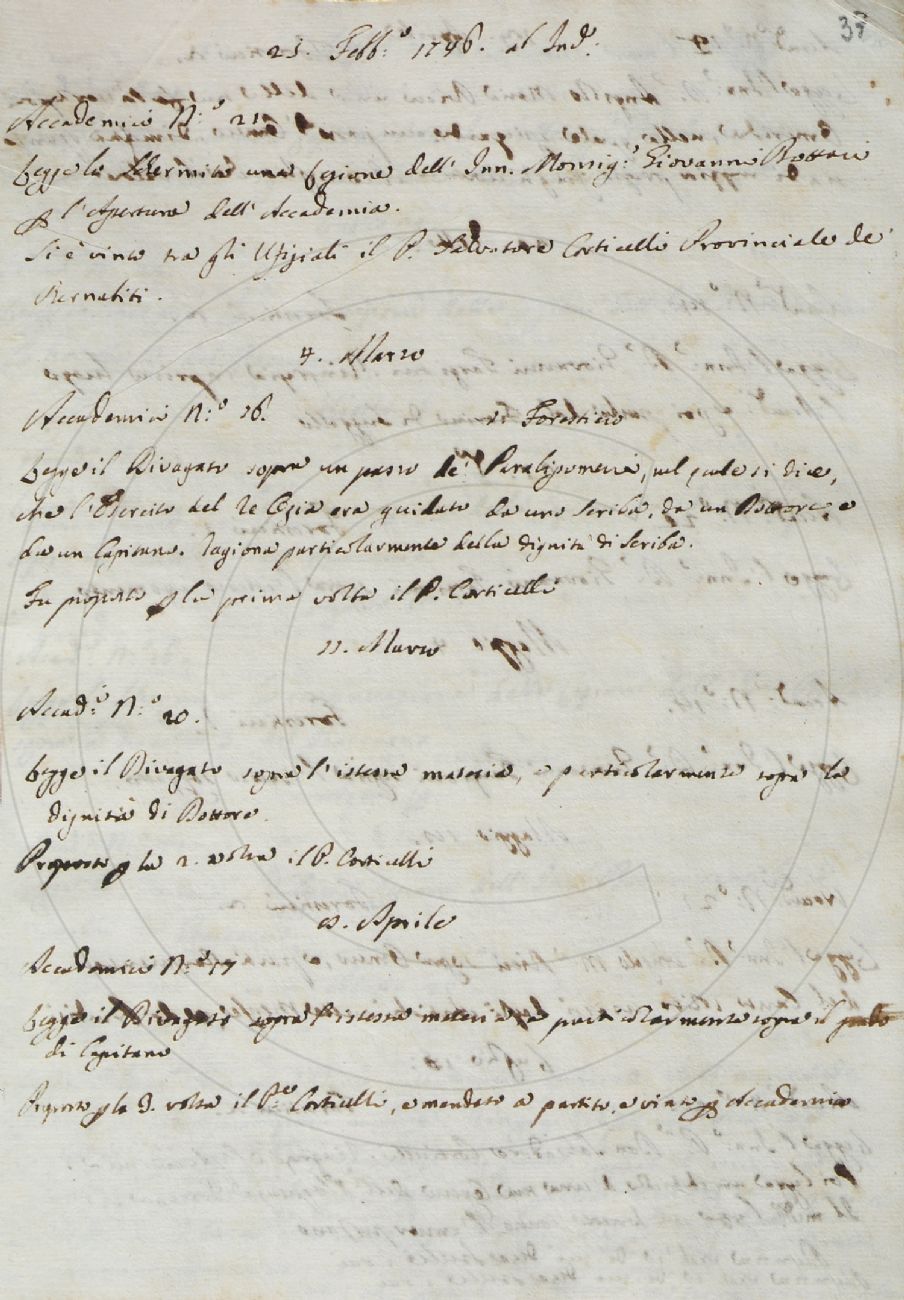 37
21. Febb:º 1746. ab Ind:
Accademici N:º 21
Legge lo Schermito una Legione dell' Inn. Monsig:r Giovanni Bottari
p l'Apertura dell' Accademia.
Si è vinto tra gli Ufiziali il P. Salvatore Corticelli Provinciale de'
Bernabiti.
4. Marzo
Accademici N:º 16. Forestiero
Legge il Divagato sopra un passo de' Paralipomeni, nel quale si dice,
che l'Esercito del Re Ozia era guidato da uno Scriba, da un Dottore, e
da un Capitano. Ragiona particolarmente della dignità di Scriba.
Fu proposto p la prima volta il P. Corticelli
11. Marzo
Accad:i N:º 20.
Legge il Divagato sopra l'istessa materia, e particolarmente sopra la
dignità di Dottore.
Proposto p la 2. volta il P. Corticelli
Aprile
Accademici N:º 17
Legge il Divagato sopra l'istessa materia, e particolarmente sopra il grado
di Capitano
Proposto p la 3. volta il P:re Corticelli, e mandato a partito, e vinto p Accademico